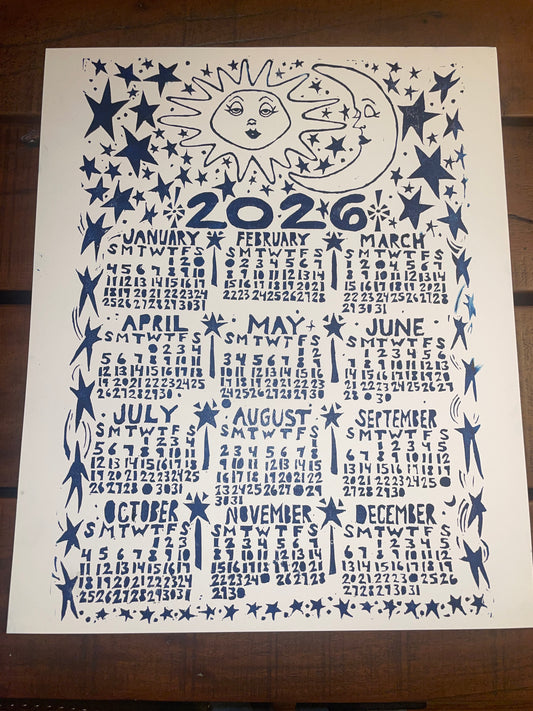 2026
JANUARY
S M T W T F S
1 2
4 5 6 7 8 9 10
11 12 13 14 15 16 17
18 19 20 21 22 23 24
25 26 27 28 29 30 31
FEBRUARY
S M T W T F S
2 3 4 5 6 7
8 9 10 11 12 13 14
15 16 17 18 19 20 21
22 23 24 25 26 27 28
MARCH
S M T W T F S
1 2 4 5 6 7
8 9 10 11 12 13 14
15 16 17 18 19 20 21
22 23 24 25 26 27 28
29 30 31
APRIL
S M T W T F S
2 3 4
5 6 7 8 9 10 11
12 13 14 15 16 17 18
19 20 21 22 23 24 25
26 27 28 29 30
MAY
S M T W T F S
1 2
3 4 5 6 7 8 9
10 11 12 13 14 15 16
17 18 19 20 21 22 23
24 25 26 27 28 29 30
JUNE
S M T W T F S
1 2 3 4 5 6
7 8 9 10 11 12 13
14 15 16 17 18 19 20
21 22 23 24 25 26 27
28 30
JULY
S M T W T F S
1 2 3 4
5 6 7 8 9 10 11
12 13 14 15 16 17 18
19 20 21 22 23 24 25
26 27 28 30 31
AUGUST
S M T W T F S
1
2 3 4 5 6 7 8
9 10 11 12 13 14 15
16 17 18 19 20 21 22
23 24 25 26 27 29
30 31
SEPTEMBER
S M T W T F S
1 2 3 4 5
6 7 8 9 10 11 12
13 14 15 16 17 18 19
20 21 22 23 24 25
27 28 29 30
OCTOBER
S M T W T F S
1 2 3
4 5 6 7 8 9 10
11 12 13 14 15 16 17
18 19 20 21 22 23 24
25 26 27 28 29 30 31
NOVEMBER
S M T W T F S
1 2 3 4 5 6 7
8 9 10 11 12 13 14
15 16 17 18 19 20 21
22 23 24 26 27 28
29 30
DECEMBER
S M T W T F S
1 2 3 4 5
6 7 8 9 10 11 12
13 14 15 16 17 18 19
20 21 22 23 25 26
27 28 29 30 31